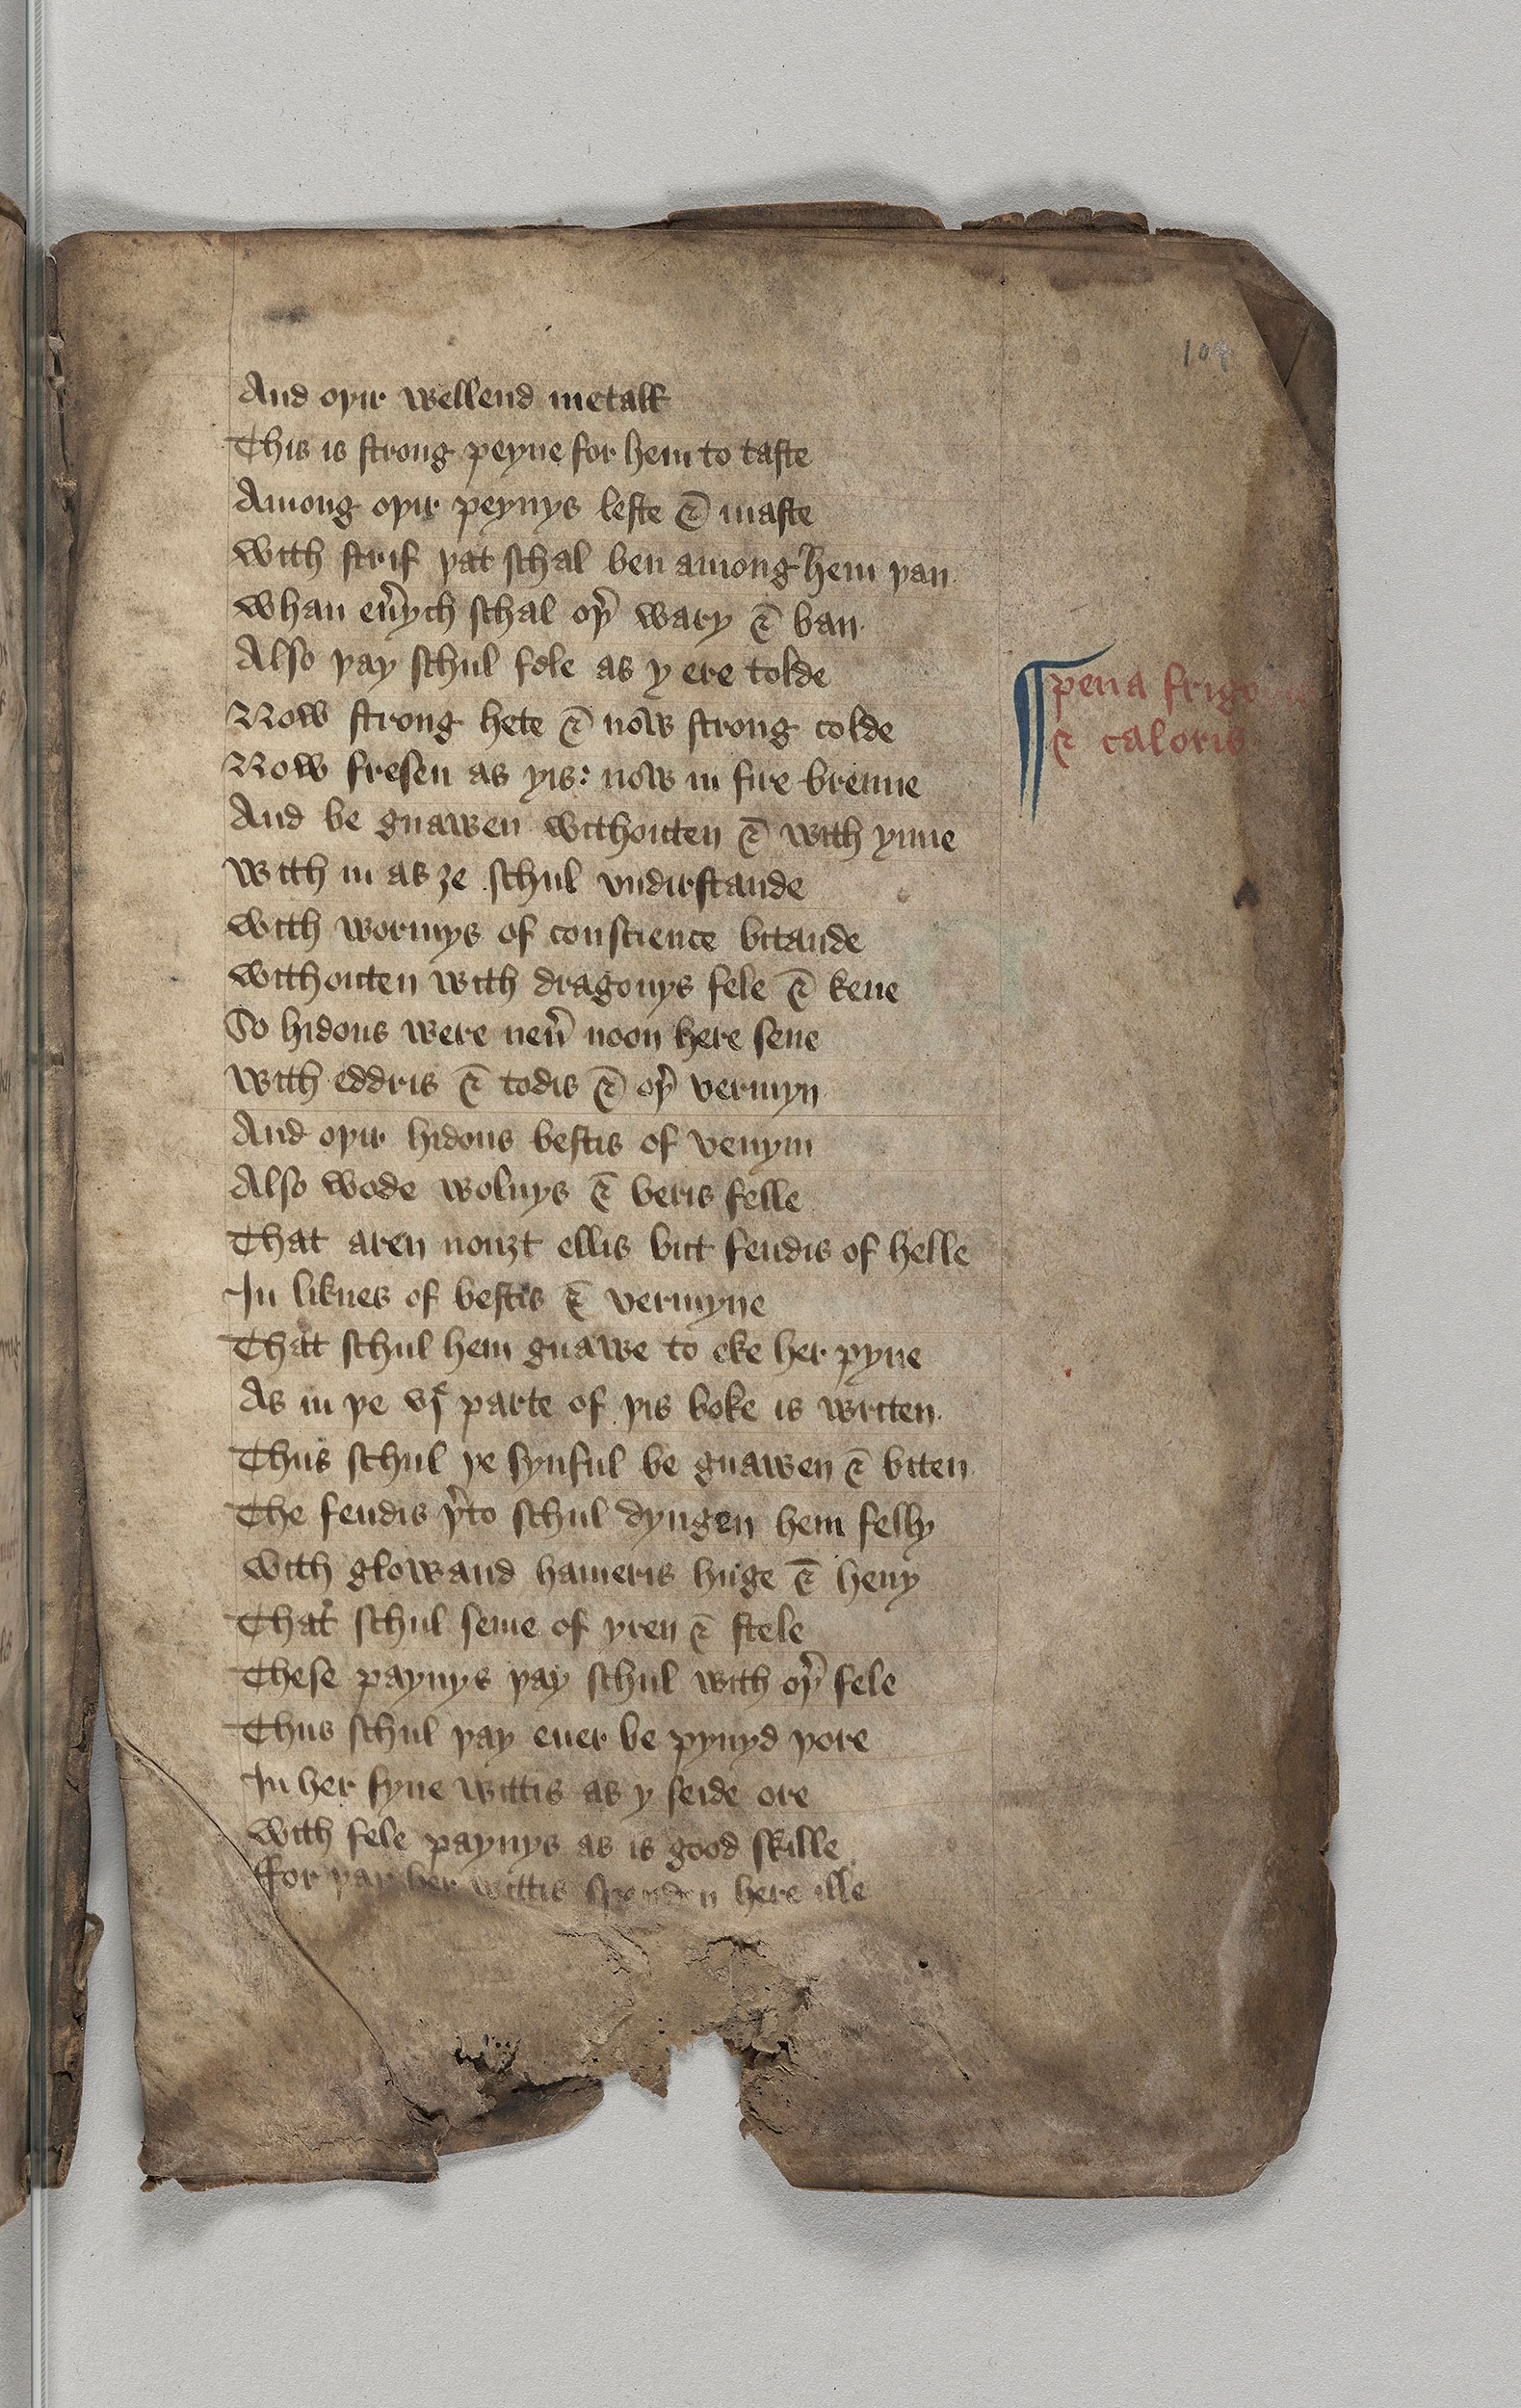 And oþir wellend metall
This is strong peyne for hem to taste
Among oþir peynys leste & maste
With strif þat schal ben among hem þan
Whan eu'ych schal oþ' wary & ban
Also þay schul fele as y ere tolde
Now strong hete & now strong colde
Now fresen as yis: now in fire brenne
And be gnawen withouten & with ynne
With in as ȝe schul vndirstande
With wormys of conscience bitande
Withouten with dragonys fele & kene
So hidous were neu' noon here sene
With eddris & todis & oþ' vermyn
And oþir hidous bestis of venym
Also wode woluys & beris felle
That aren nouȝt ellis but fendis of helle
In liknes of bestis & vermyne
That schul hem gnawe to eke her pyne
As in þe vj^e parte of þis boke is writen
Thus schul þe synful be gnawen & biten
The fendis þ'to schul dyngen hem felly
With glowand hameris huge & heuy
That schul seme of yren & stele
These paynys þay schul with oþ' fele
Thus schul þay euer be pynyd þore
In her fyue wittis as y seide ore
With fele paynys as is good skille
Ffor þay her wittis spenden here ille
¶ pena frigoris
& caloris